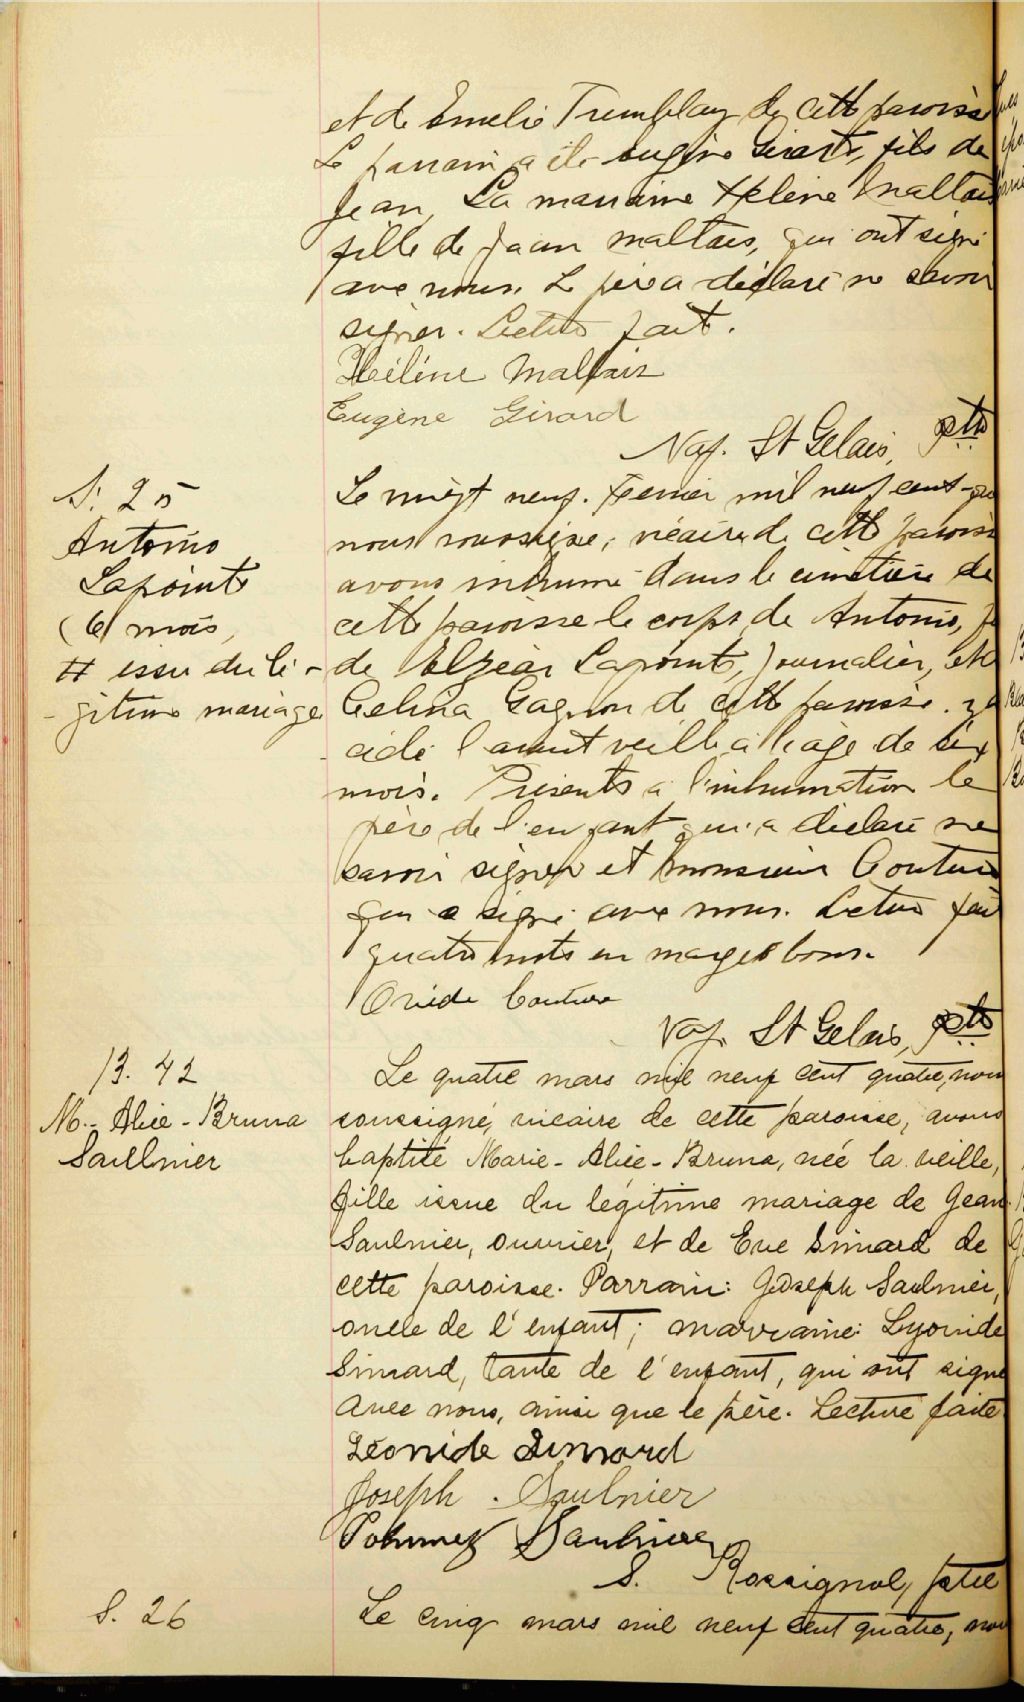 et de Emelie Tremblay de cette paroisse
Le parrain a été Eugène Girard, fils de
Jean, La marraine Helène Maltais
fille de Jean Maltais, qui ont signé
avec nous. Le père a déclaré ne savoir
signer. Lecture fait.
Hélène Maltais
Eugène Girard
Nap. St Gelais, ptre
S. 25
Antonio
Lapointe
(6 mois,
# issu du lé-
-gitime mariage
Le vingt neuf. Fevrier mil neuf cent
nous soussigné, vicaire de cette paroisse
avons inhumé dans le cimetière de
cette paroisse le corps de Antonio,
de Elzéar Lapointe, journalier, et #
Celina Gagnon de cette paroisse.
cédé l'avant veille à l'age de six
mois. Présents a l'inhumation le
père de l'enfant qui a déclaré ne
savoir signer et monsieur Couture
qui a signé avec nous. Lecture fait
quatre mots en marge bons.
Ovide Couture
Nap. St Gelais, ptre
B. 42
M.- Alice - Bruna
Saulnier
Le quatre mars mil neuf cent quatre, nous
soussigné, vicaire de cette paroisse, avons
baptisé Marie-Alice-Bruna, née la veille,
fille issue du légitime mariage de Jean
Saulnier, ouvrier, et de Eve Simard de
cette paroisse. Parrain: Joseph Saulnier,
oncle de l'enfant; marraine: Lyonide
Simard, tante de l'enfant, qui ont signé
avec nous, ainsi que le père. Lecture faite
Léonide Simard
Joseph. Saulnier
Saulnier
S. Rossignol, ptre
S. 26
Le cinq mars mil neuf cent quatre, nous